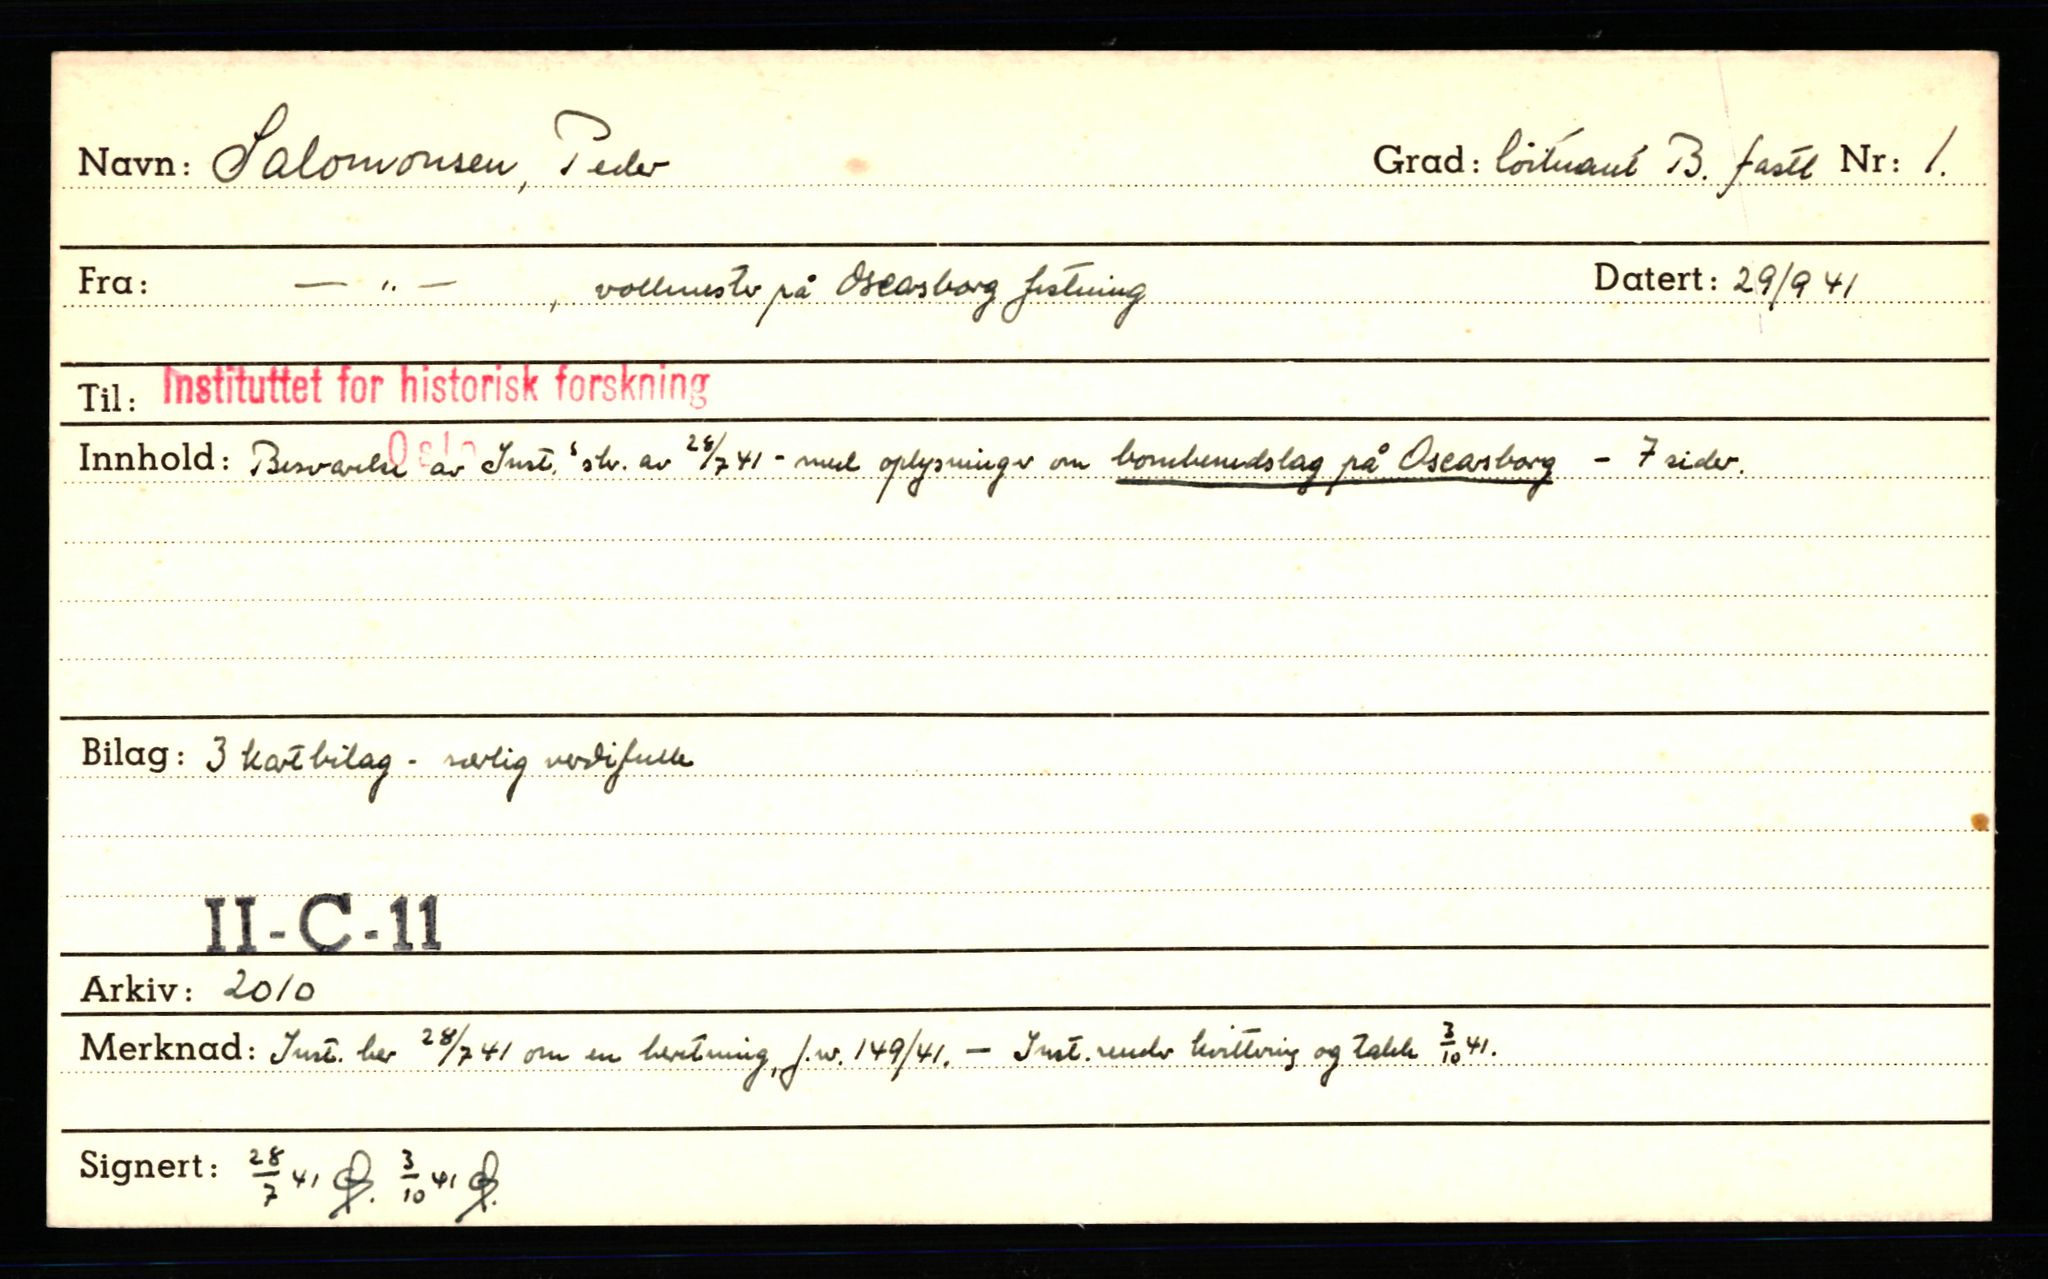 Navn: Salomonsen, Peder Grad: löitnant B. fastl Nr: 1.
Fra: — " — , vollmester på Oscarsborg festning Datert: 29/9 41
Til: Instituttet for historisk forskning
Oslo
Innhold: Besvarelse av Inst.'s skr. av 28/7 41 - med oplysninger om bombenedslag på Oscarsborg - 7 sider.
Bilag: 3 kartbilag - særlig verdifulle
II-C-11
Arkiv: 2010
Merknad: Inst. ber 28/7 41 om en beretning, j.nr. 149/41. — Inst. sender kvittering og takk 3/10 41.
Signert: 28/7 41 3/10 41